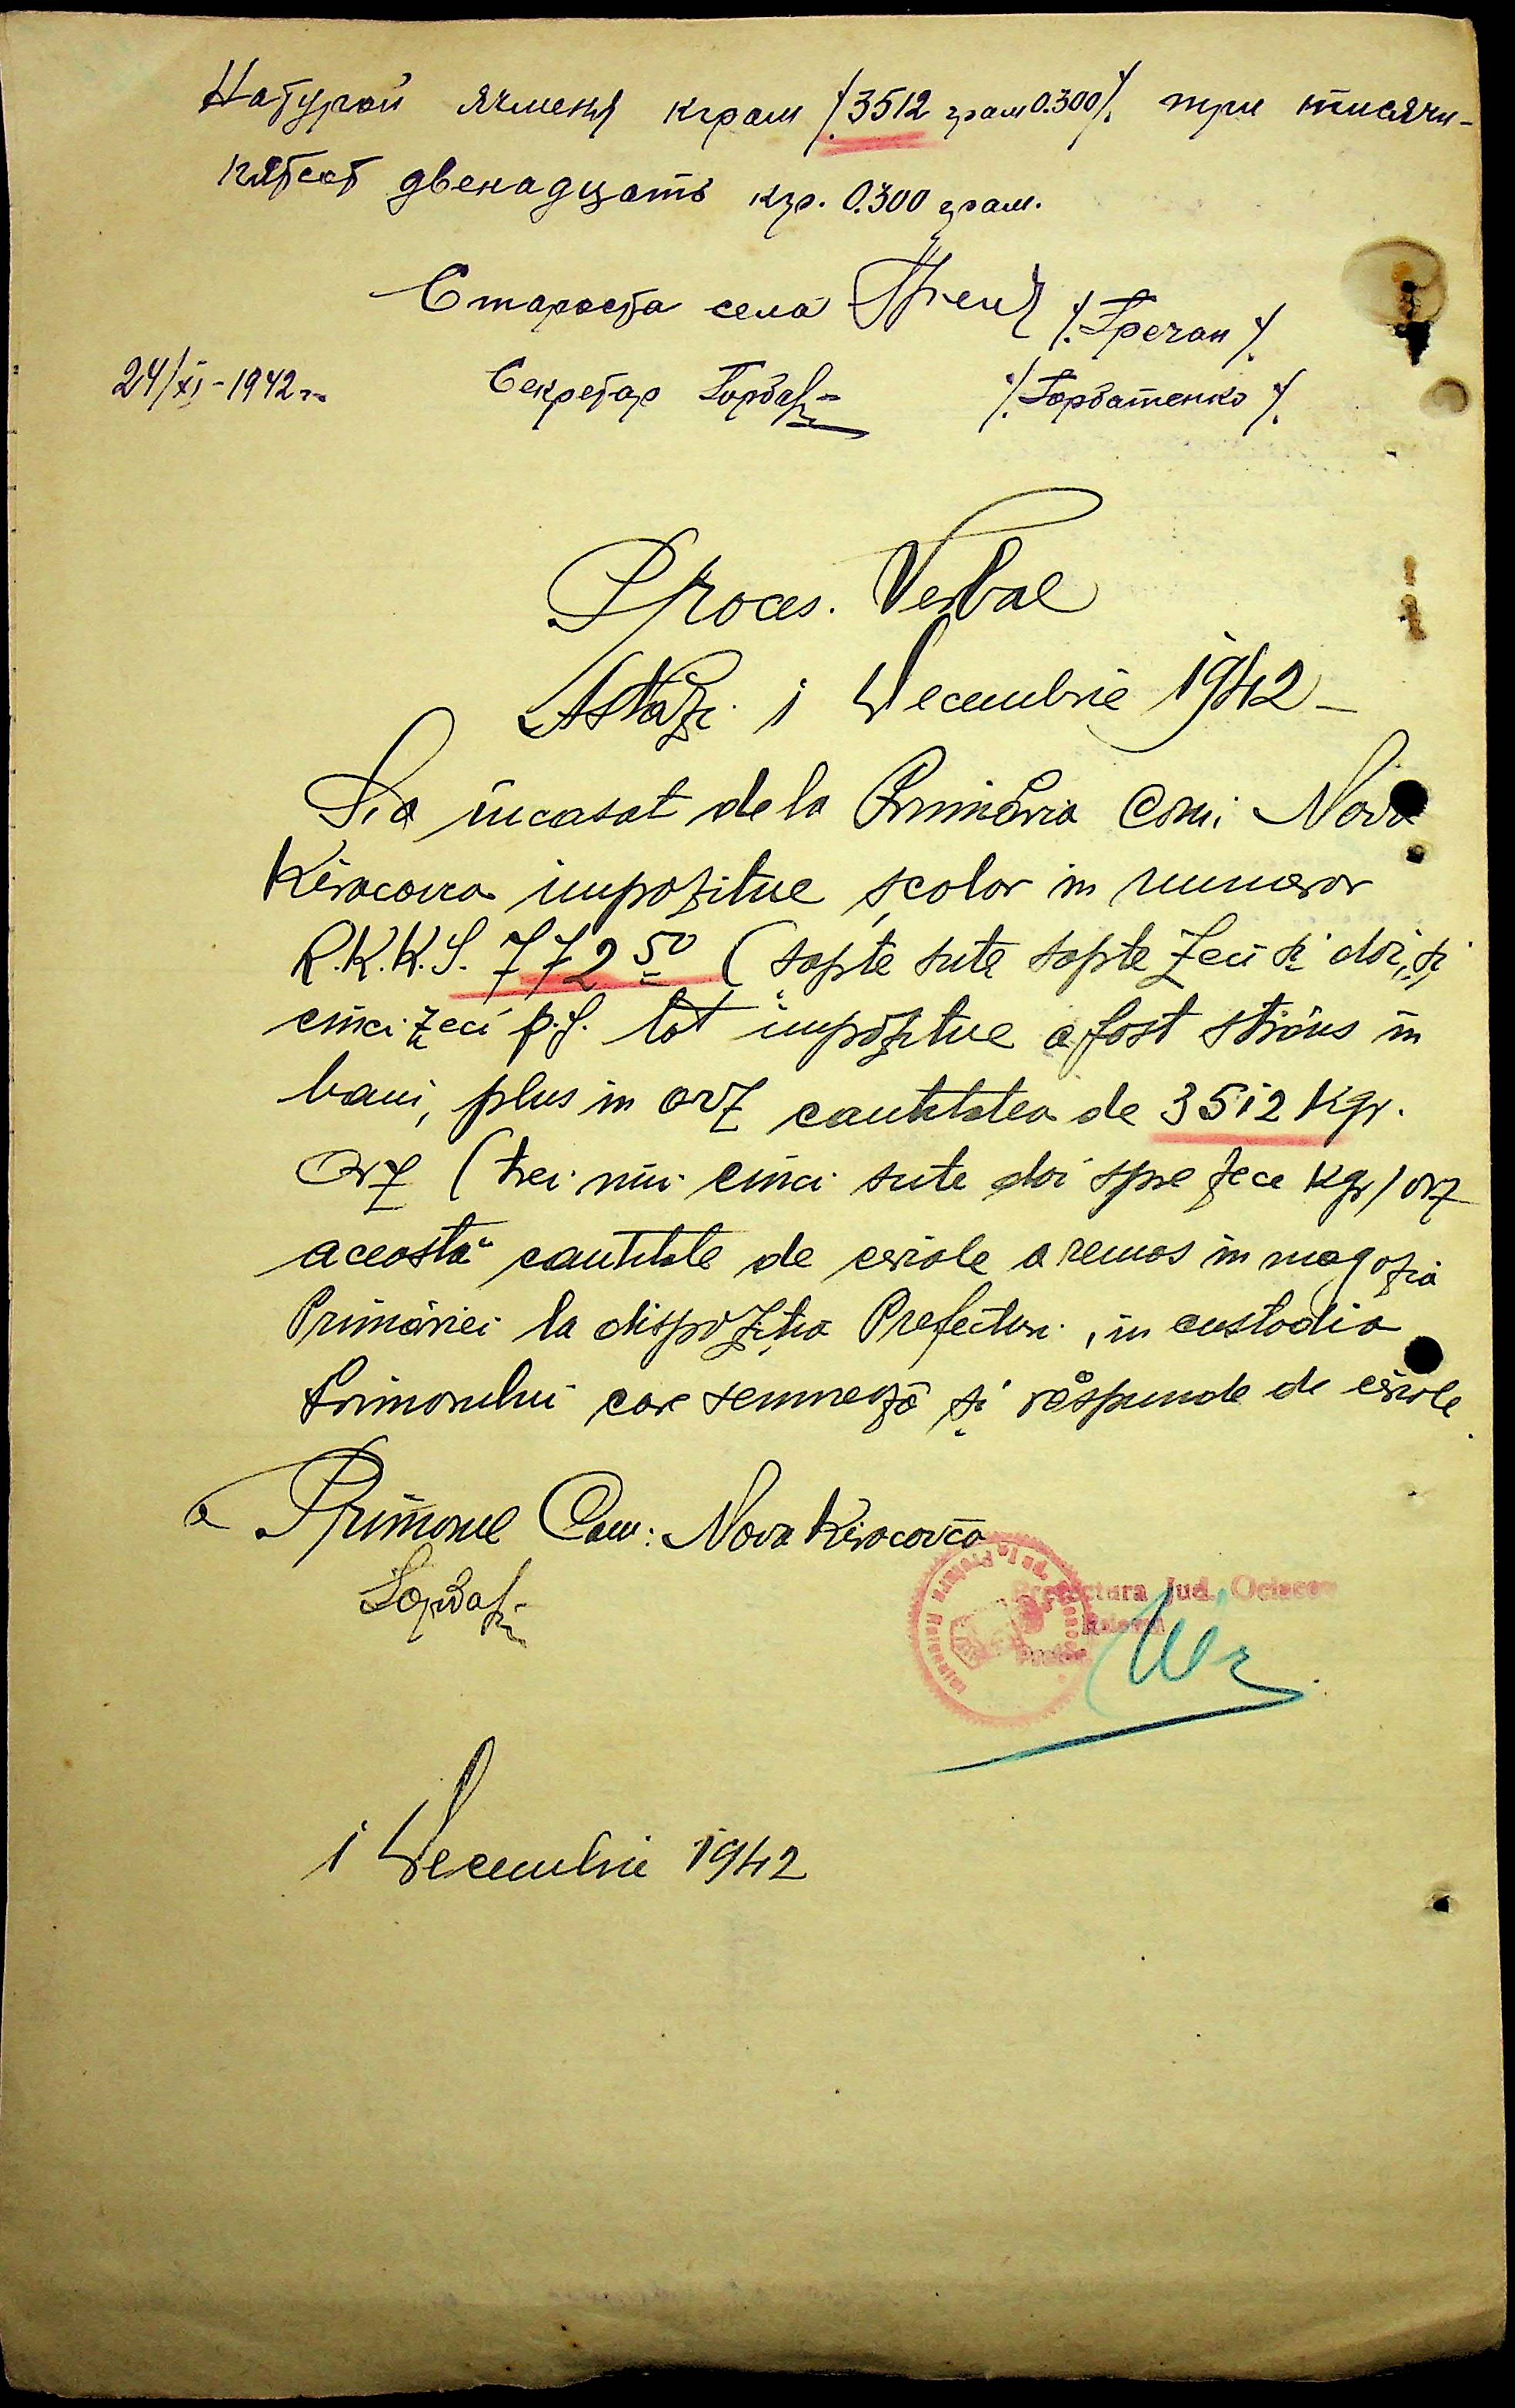 Натурой ячменя кграм /.3512 грам 0.300/. три тисячи-
пятсот двенадцать кгр. 0.300 грам.
Староста села /.Гречан/.
24/XI-1942 г. Секретар Горбат /.Горбатенко/.
Proces. Verbal
Astăzi 1 Decembrie 1942 -
S'a incasat de la Primăria Com: Nova
Kiracovca impozitue școlar in numerar
R.K.K.S. 772 50 (șapte sute șapte zeci și doi, și
cinci zeci p.f. tot impozitue a fost strâns in
bani, plus in orz cantitatea de 3512 Kgr.
Orz (trei mii cinci sute doi spre zece kgr) orz
aceasta cantitate de ceriale a remas in magazia
Primăriei la dispoziția Prefecturi, in custodia
Primarului care semnează și răspunde de ceriale
Primarul Com: Nova Kiracovca
Горбат
Prefectura Jud. Oceacov
1 Decembrie 1942